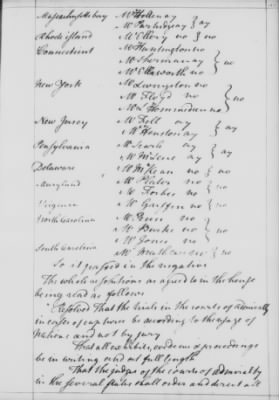 Massachusetts bay Mr Holten ay
Mr Partridge ay } ay
Rhode island Mr Ellery no } no
Connecticut Mr Huntington no
Mr Sherman ay } no
Mr Ellsworth no
New York Mr Livingston no
Mr Floyd no } no
Mr L'Hommedieu no
New Jersey Mr Fell ay
Mr Houston ay } ay
Pensylvania Mr Searle ay
Mr Muhlenberg ay } ay
Delaware Mr McKean no } no
Maryland Mr Plater no
Mr Forbes no } no
Virginia Mr Griffin no }
North Carolina Mr Penn no
Mr Burke no } no
Mr Jones no
South Carolina Mr Mathews no }
So it passed in the negative
The whole resolutions as agreed to in the house
being read as follows
Resolved That the trials in the courts of admiralty
in cases of capture be according to the usage of
nations and not by jury
That all exhibits, evidence & proceedings
be in writing at full length
That the judges of the courts of admiralty
in the several states shall order and direct all